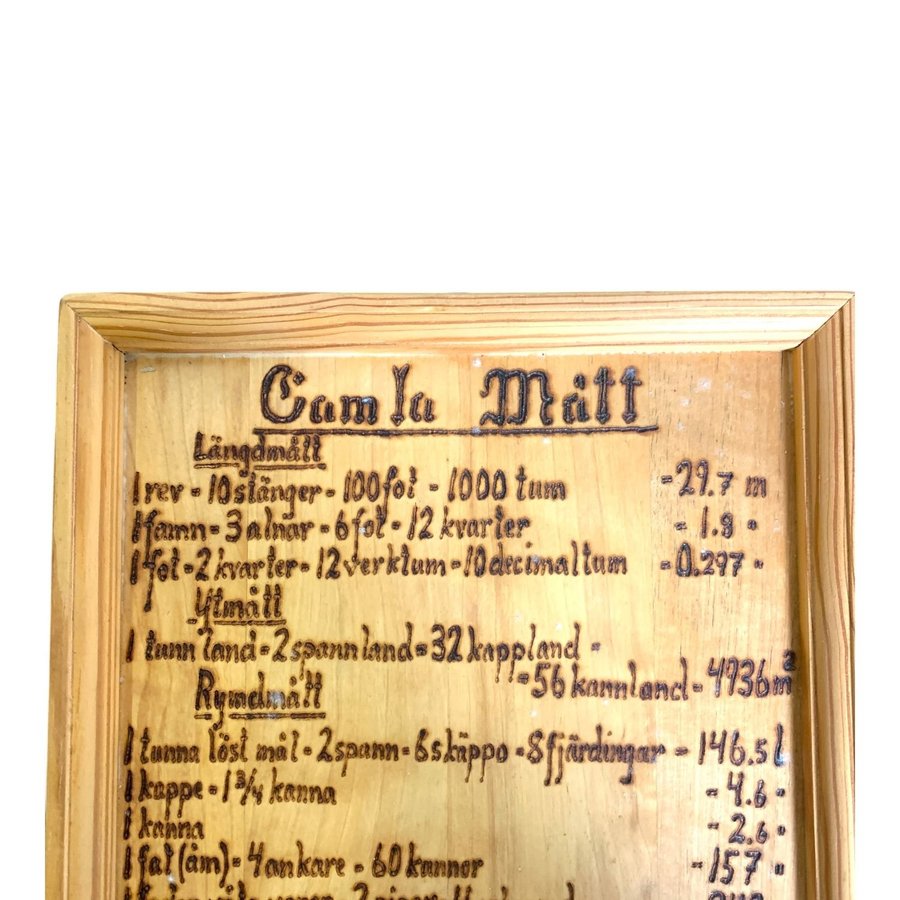 Gamla Mått
Längdmått
1 rev = 10 stänger = 100 fot = 1000 tum = 29.7 m
1 famn = 3 alnar = 6 fot = 12 kvarter = 1.8 "
1 fot = 2 kvarter = 12 verktum = 10 decimaltum = 0.297 "
Ytmått
1 tunnland = 2 spannland = 32 kappland =
= 56 kannland = 4936 m²
Rymdmått
1 tunna löst mål = 2 spann = 6 skäppo = 8 fjärdingar = 146.5 l
1 kappe = 1 3/4 kanna = 4.6 "
1 kanna = 2.6 "
1 fat (åm) = 4 ankare = 60 kannor = 157 "